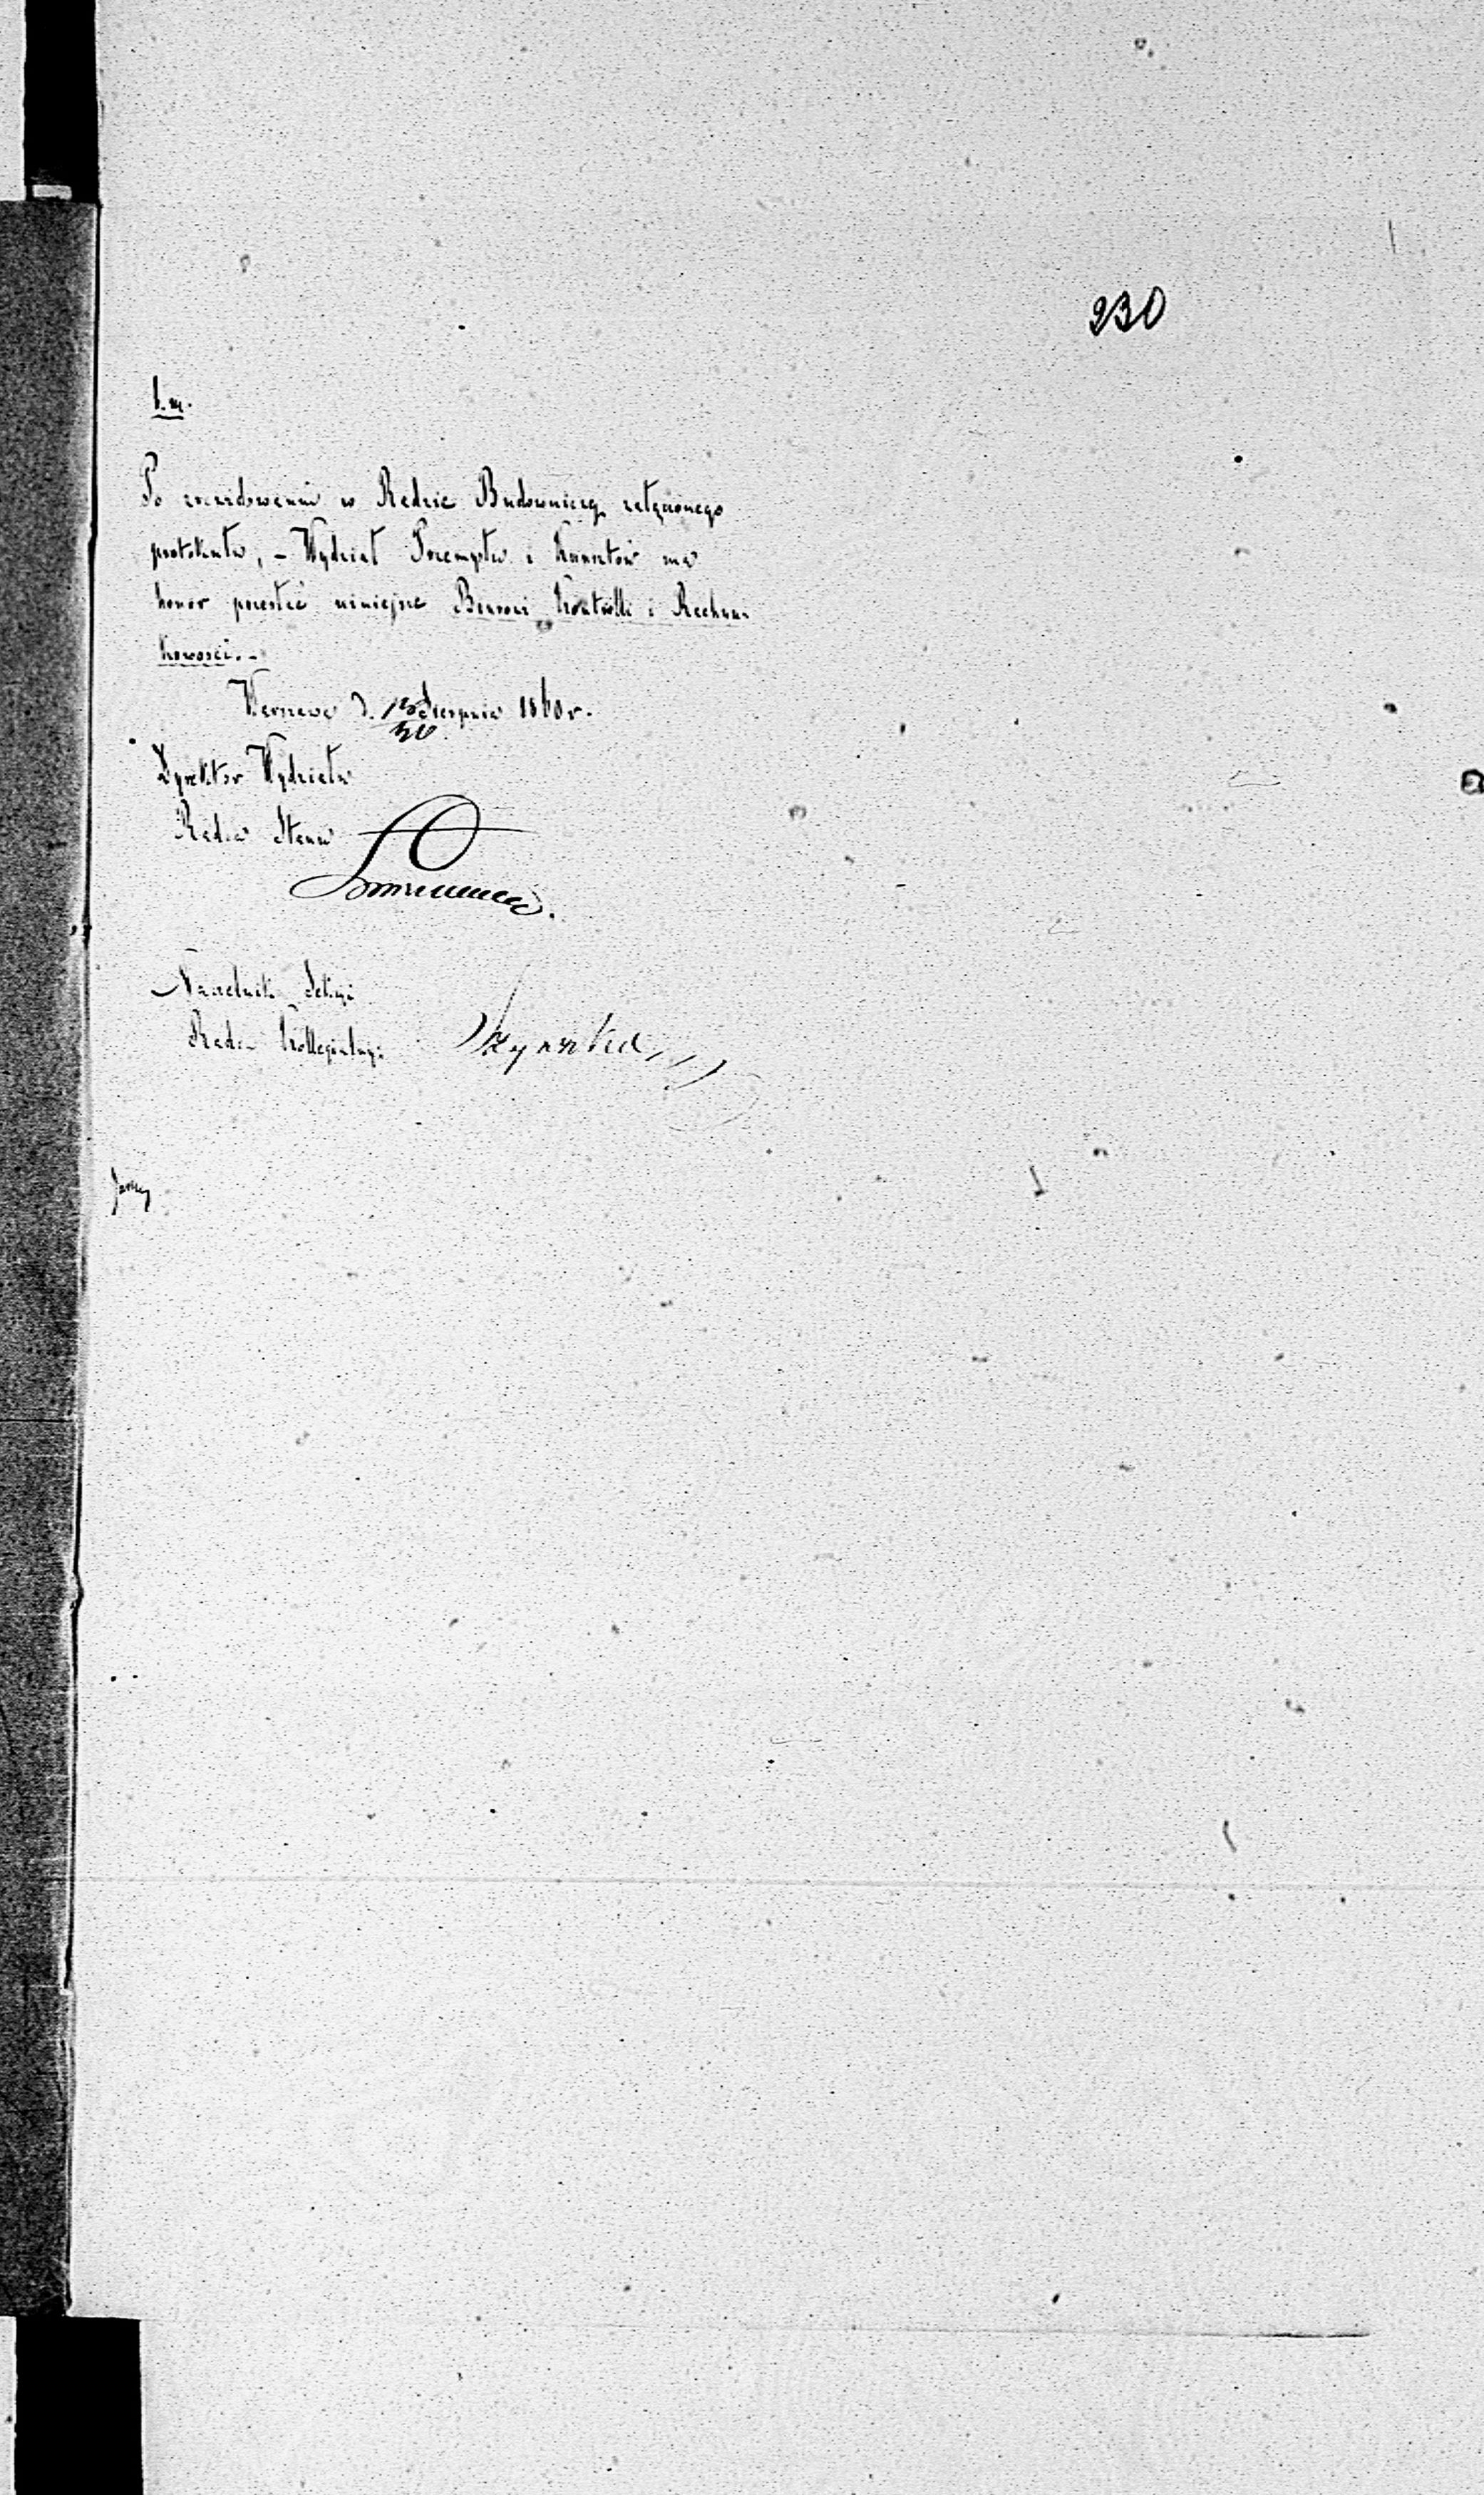 230
b.m.
Po zawidowaniu w Radzie Budowniczej załączonego
protokułu, – Wydział Przemysłu i Kunsztów ma
honor przesłać niniejsze Biurowi Kontrolli i Rachun-
kowości. –
Warszawa d. 18/30 Sierpnia 1860 r.
Dyrektor Wydziału
Radca Stanu
Naczelnik Sekcyi
Radca Kollegialny